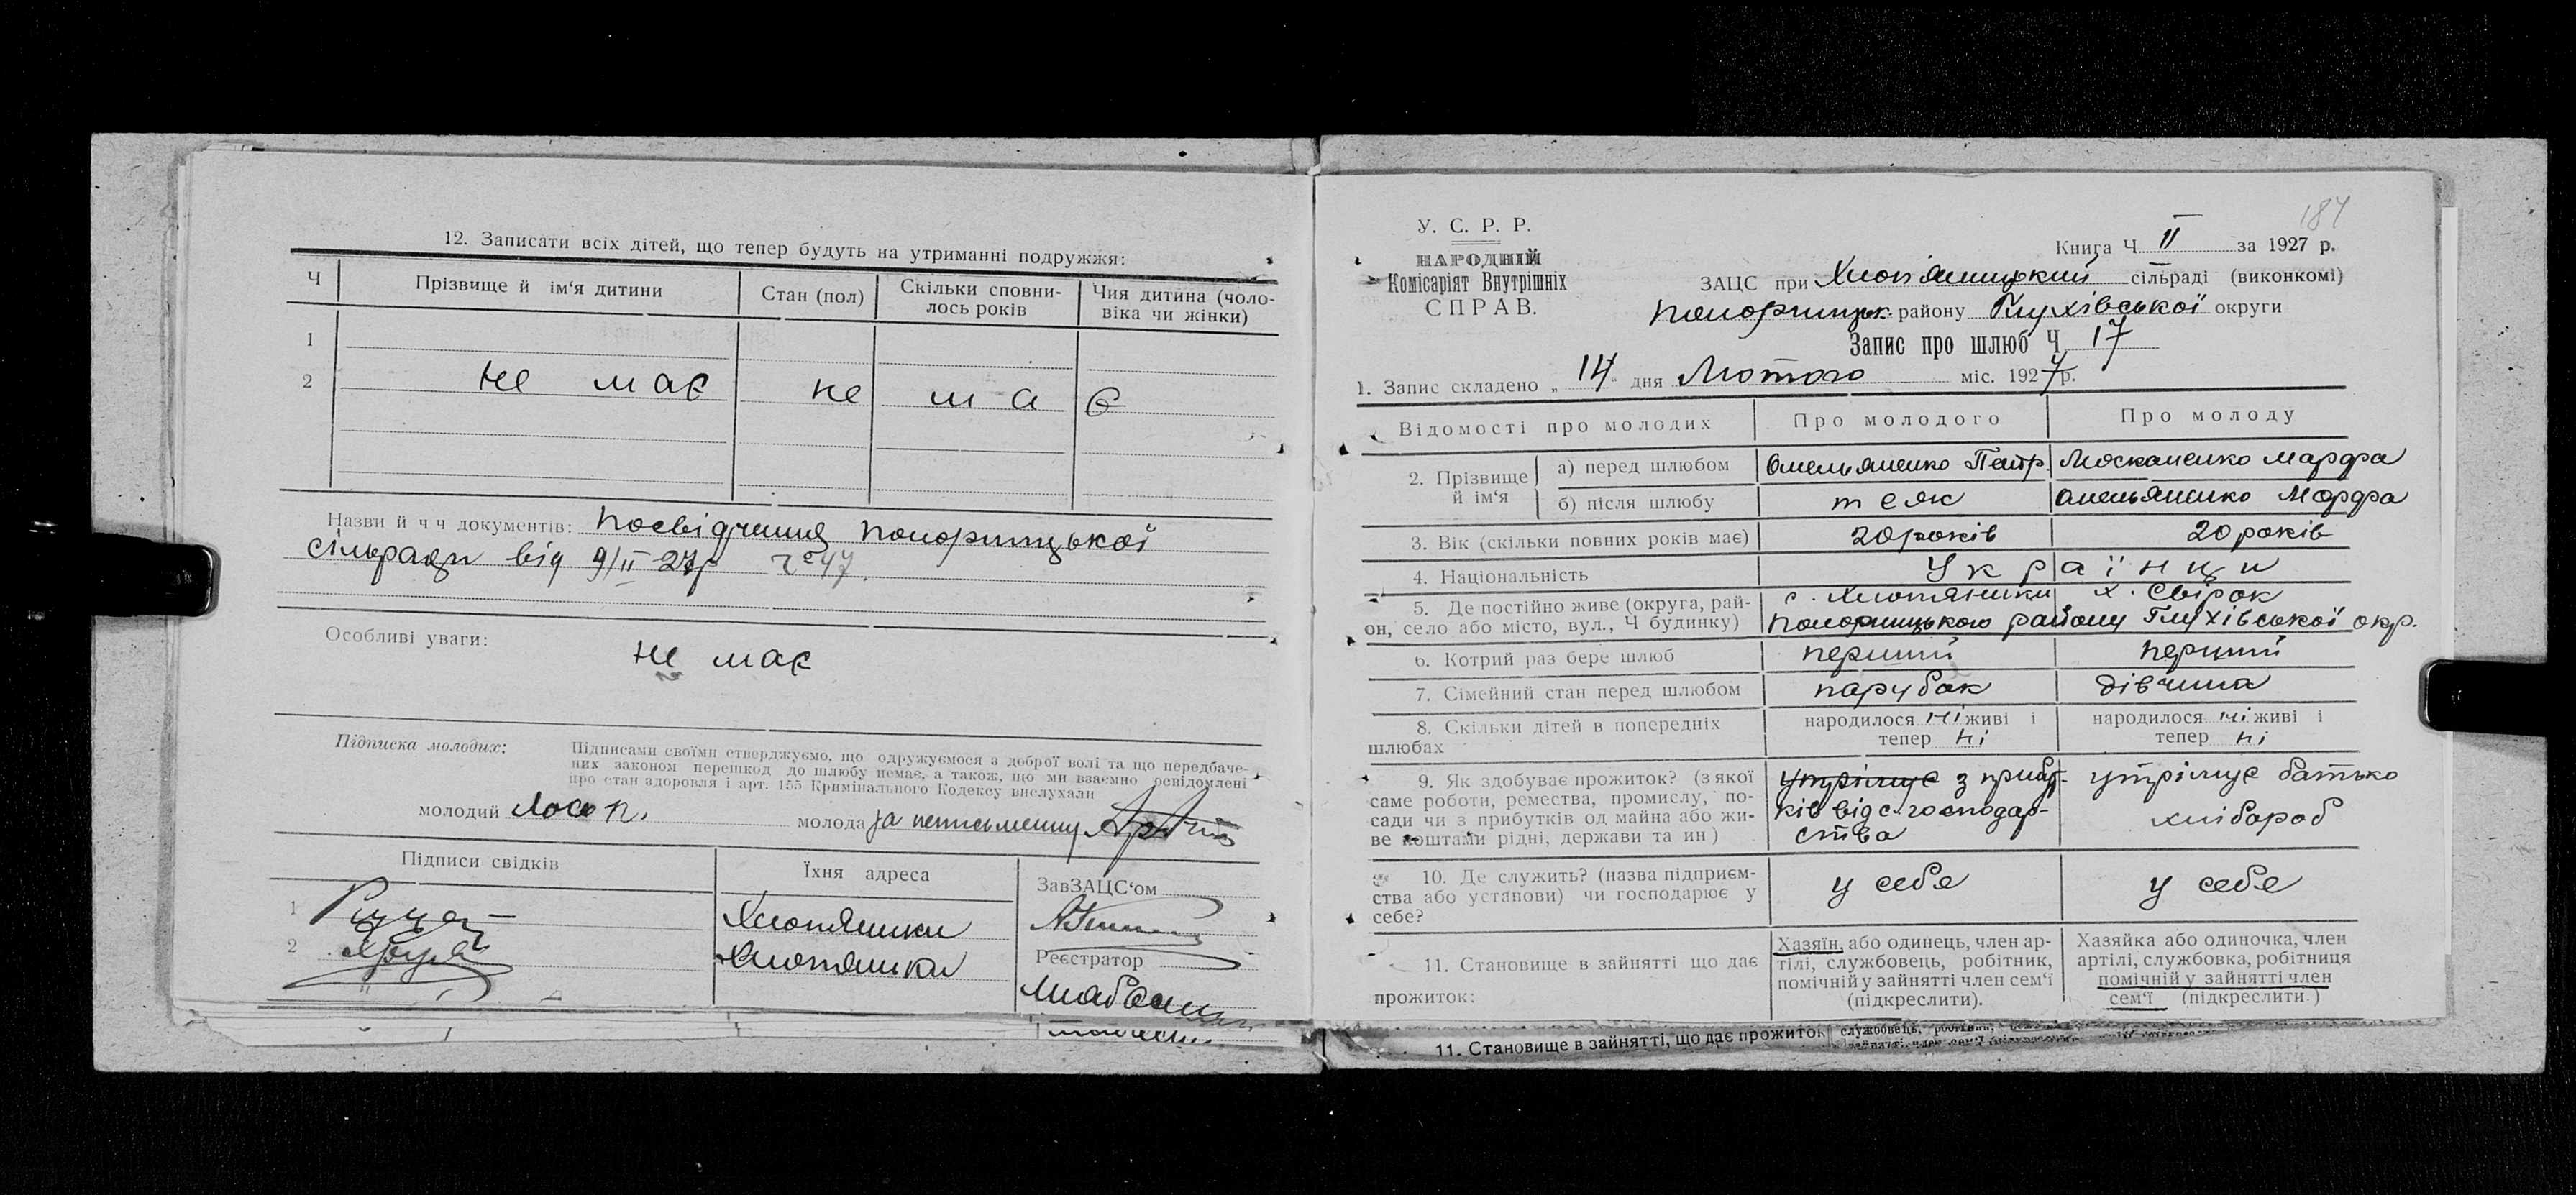 12. Записати всіх дітей, що тепер будуть на утриманні подружжя:
Ч
Прізвище й ім'я дитини
Стан (пол)
Скільки сповни-
лось років
Чия дитина (чоло-
віка чи жінки)
1
2 не має не ма є
Назви й ч ч документів: Посвідчення Понорницької
сільради від 9/II-27р. № 47.
Особливі уваги:
не має
Підписка молодих:
Підписами своїми стверджуємо, що одружуємося з доброї волі та що передбаче-
них законом перешкод до шлюбу немає, а також, що ми взаємно освідомлені
про стан здоров'я і арт. 155 Кримінального Кодексу вислухали
молодий
молода за неписьменну
Підписи свідків
Їхня адреса
ЗавЗАЦС'ом
1 Хлопяники
2 Хлопяники
Реєстратор
184
У. С. Р. Р.
НАРОДНІЙ
Комісаріят Внутрішніх
СПРАВ.
Книга Ч II за 1927 р.
ЗАЦС при Хлоп'яницькій сільраді (виконкомі)
Понорницьк. району Глухівської округи
Запис про шлюб Ч 17
1. Запис складено „14" дня Лютого міс. 1927 р.
Відомості про молодих
Про молодого
Про молоду
2. Прізвище й ім'я
а) перед шлюбом Омельяненко Петр. Москаленко Марфа
б) після шлюбу теж Омельяненко Марфа
3. Вік (скільки повних років має) 20 років 20 років
4. Національність Українци
5. Де постійно живе (округа, рай-
он, село або місто, вул., Ч будинку)
с. Хлопяники х. Свірок
Понорницького району Глухівської окр.
6. Котрий раз бере шлюб перший перший
7. Сімейний стан перед шлюбом парубок дівчина
8. Скільки дітей в попередніх
шлюбах
народилося ні живі і
тепер ні
народилося ні живі і
тепер ні
9. Як здобуває прожиток? (з якої
саме роботи, ремества, промислу, по-
сади чи з прибутків од майна або жи-
ве коштами рідні, держави та ин)
утрімує з прибут-
ків від с-господар-
ства
утрімує батько
хлібороб
10. Де служить? (назва підприєм-
ства або установи) чи господарює у
себе?
у себе
у себе
11. Становище в зайнятті що дає
прожиток:
Хазяїн, або одинець, член ар-
тілі, службовець, робітник,
помічній у зайнятті член сем'ї
(підкреслити).
Хазяйка або одиночка, член
артілі, службовка, робітниця
помічній у зайнятті член
сем'ї (підкреслити.)
11. Становище в зайнятті, що дає прожиток
службовець, робітник,